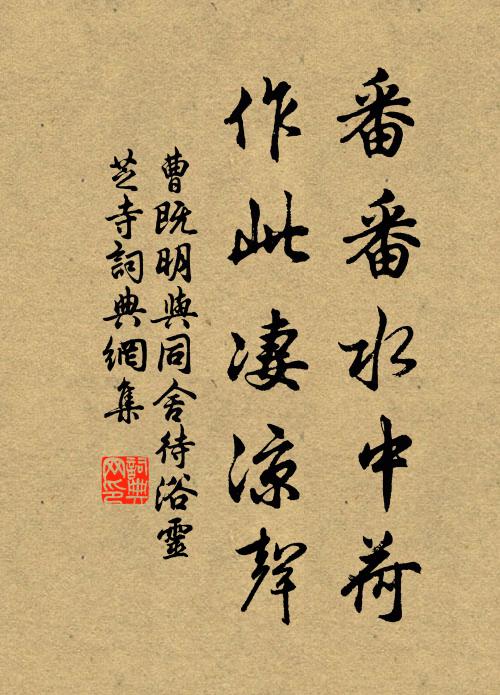 番番水中荷
作此凄涼聲
曹既明與同舍待浴靈
芝寺詞典網集
詞典
网印